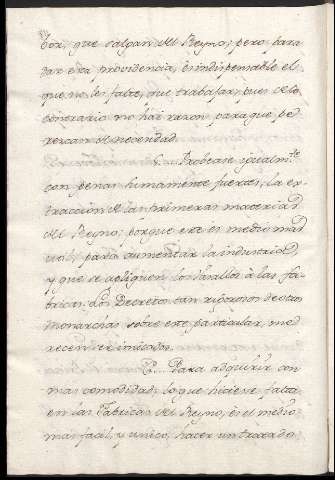 dor, que salgan del Reyno; pero para
dar esta providencia, es indispensable el
que no les falte, que trabajar, pues de lo
contrario no hai razon para que pe
rezcan de necesidad.
Probese igualm.te
con penas sumamente fuertes, la ex
traccion de las primeras materias
del Reyno; porque este es medio mas
util para aumentar la industria,
y que se apliquen los Vasallos à las fa
bricas. Los Decretos tan rigorosos de otros
Monarchas sobre este particular, me
recen ser imitados.
Para adquirir con
mas comodidad, lo que hiciese falta
en las Fabricas del Reyno, es el medio
mas facil, y unico, hacer un tratado